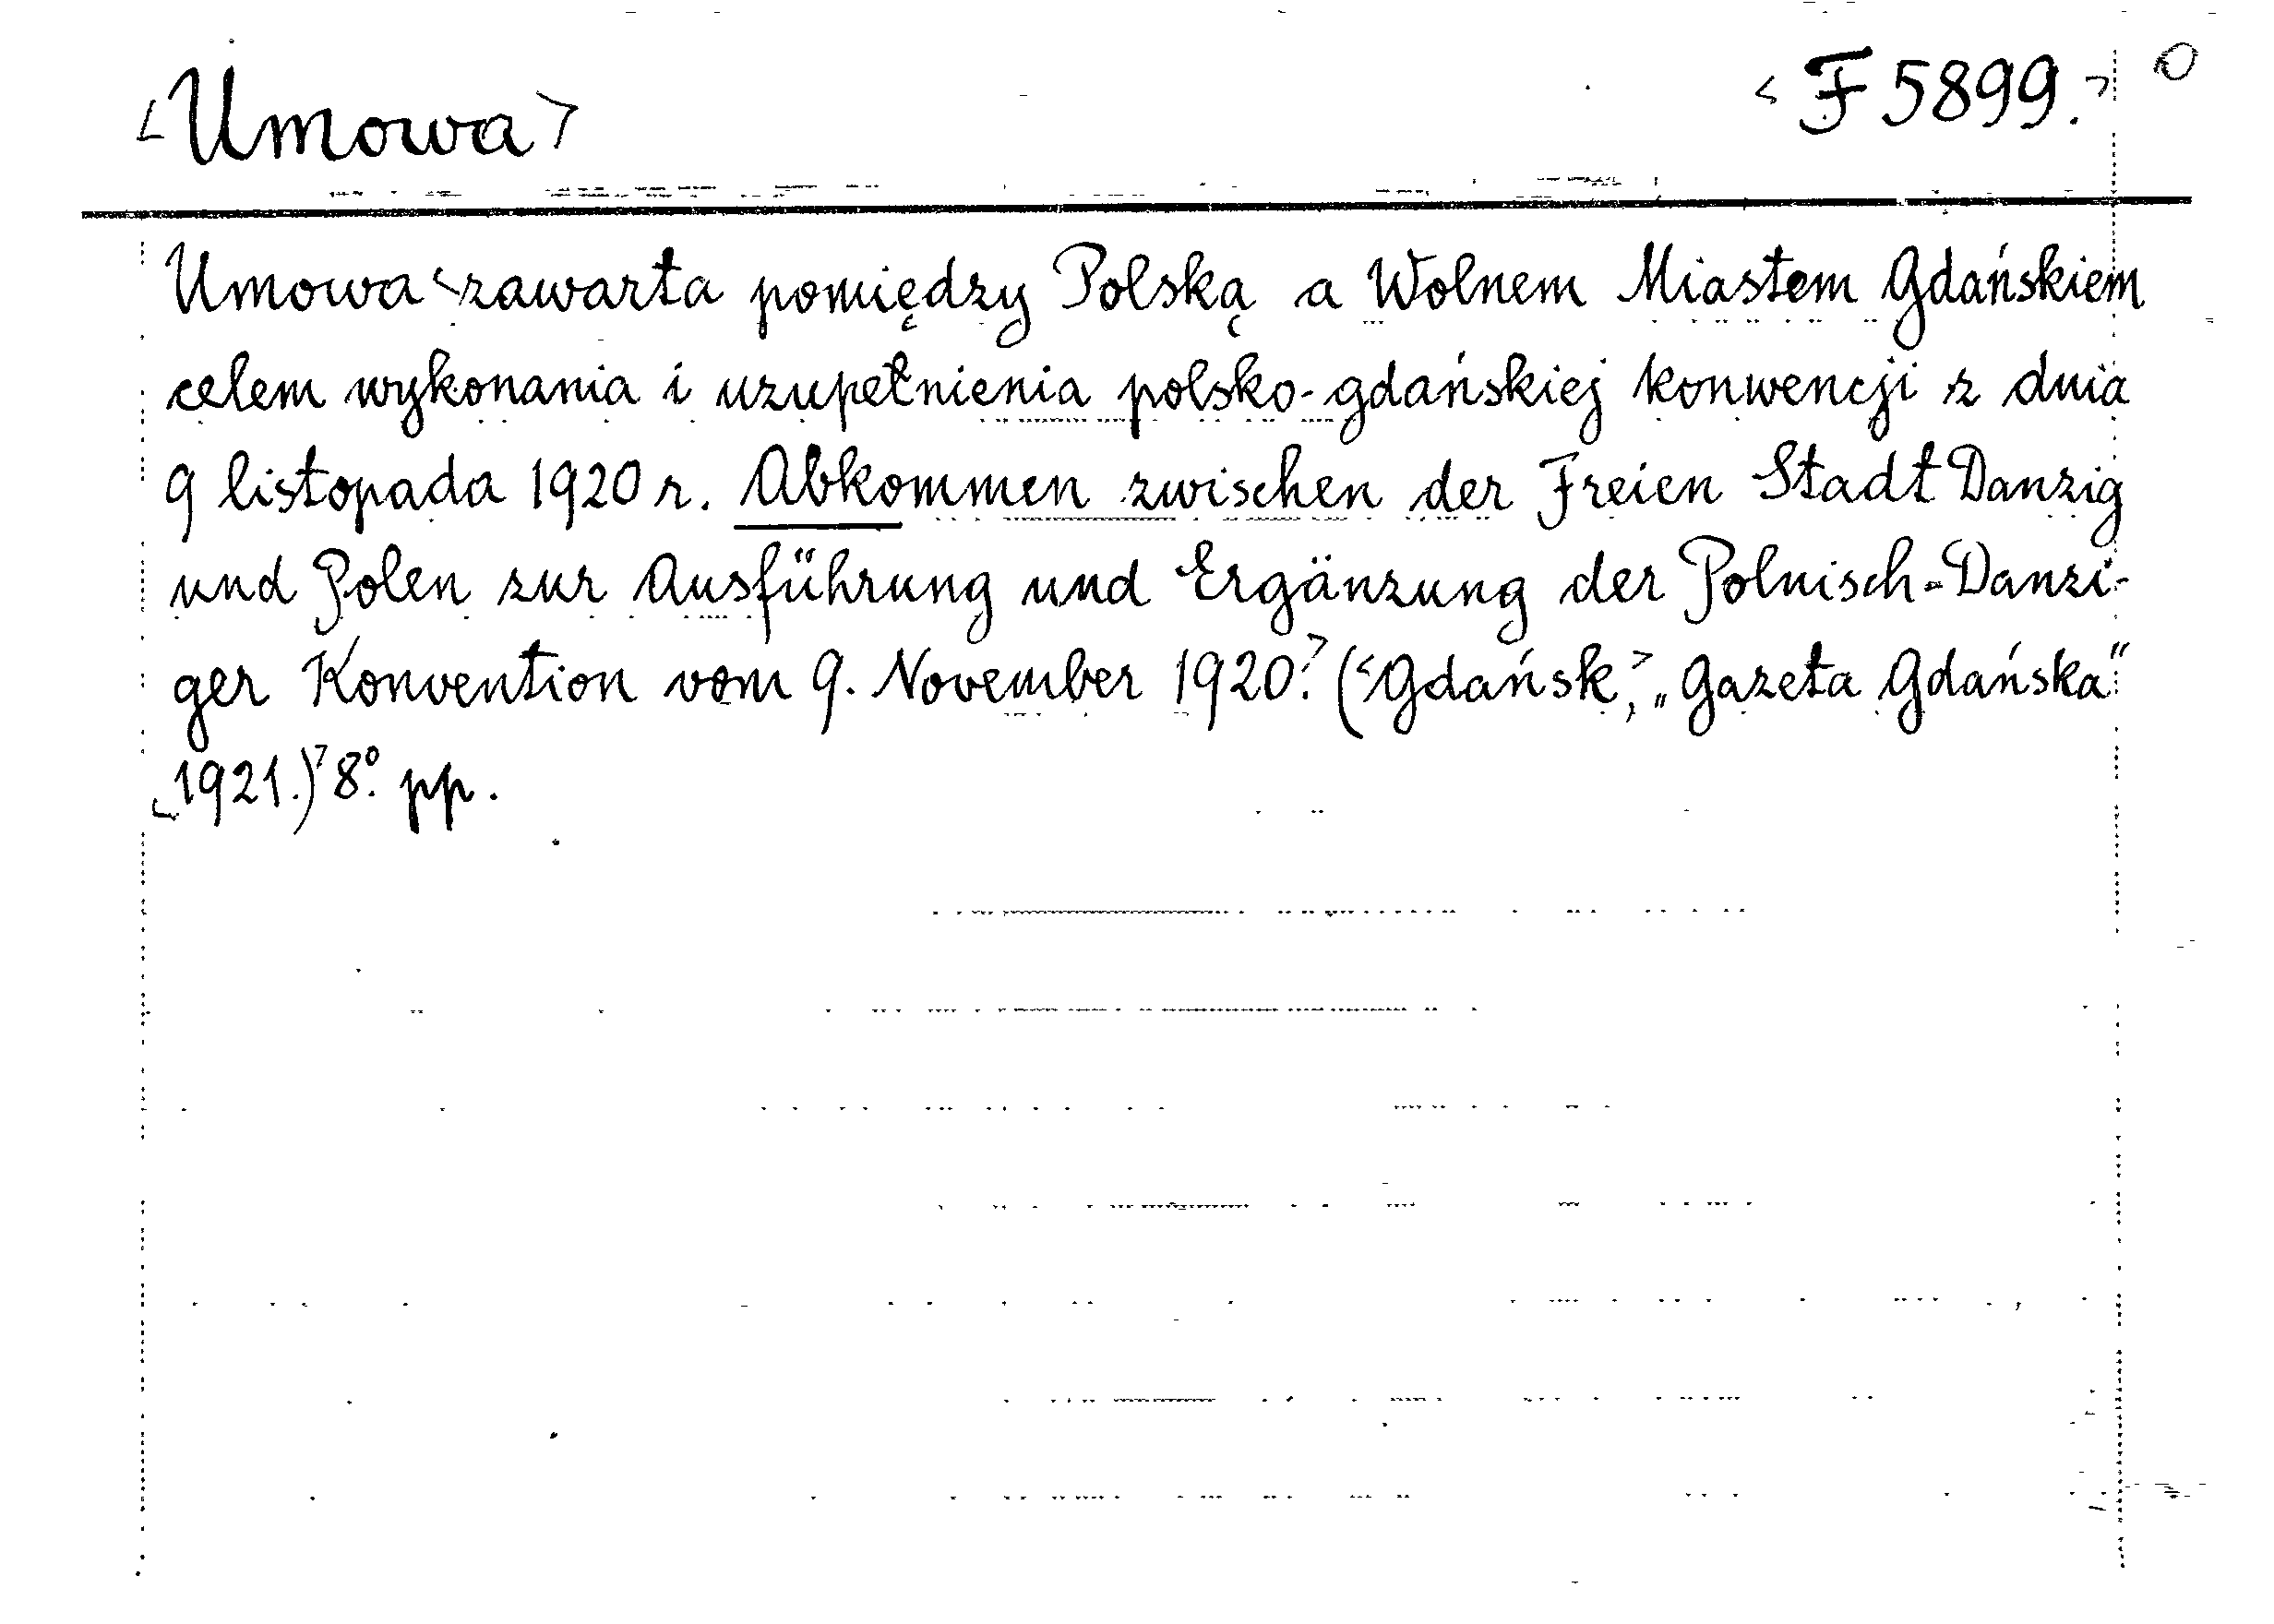 <Umowa>
<F 5899.> O
Umowa <zawarta pomiędzy Polską a Wolnem Miastem Gdańskiem
celem wykonania i uzupełnienia polsko-gdańskiej konwencji z dnia
9 listopada 1920 r. Abkommen zwischen der Freien Stadt Danzig
und Polen zur Ausführung und Ergänzung der Polnisch-Danzi-
ger Konvention vom 9. November 1920.> (<Gdańsk,> „Gazeta Gdańska"
<1921.)> 8°. pp.